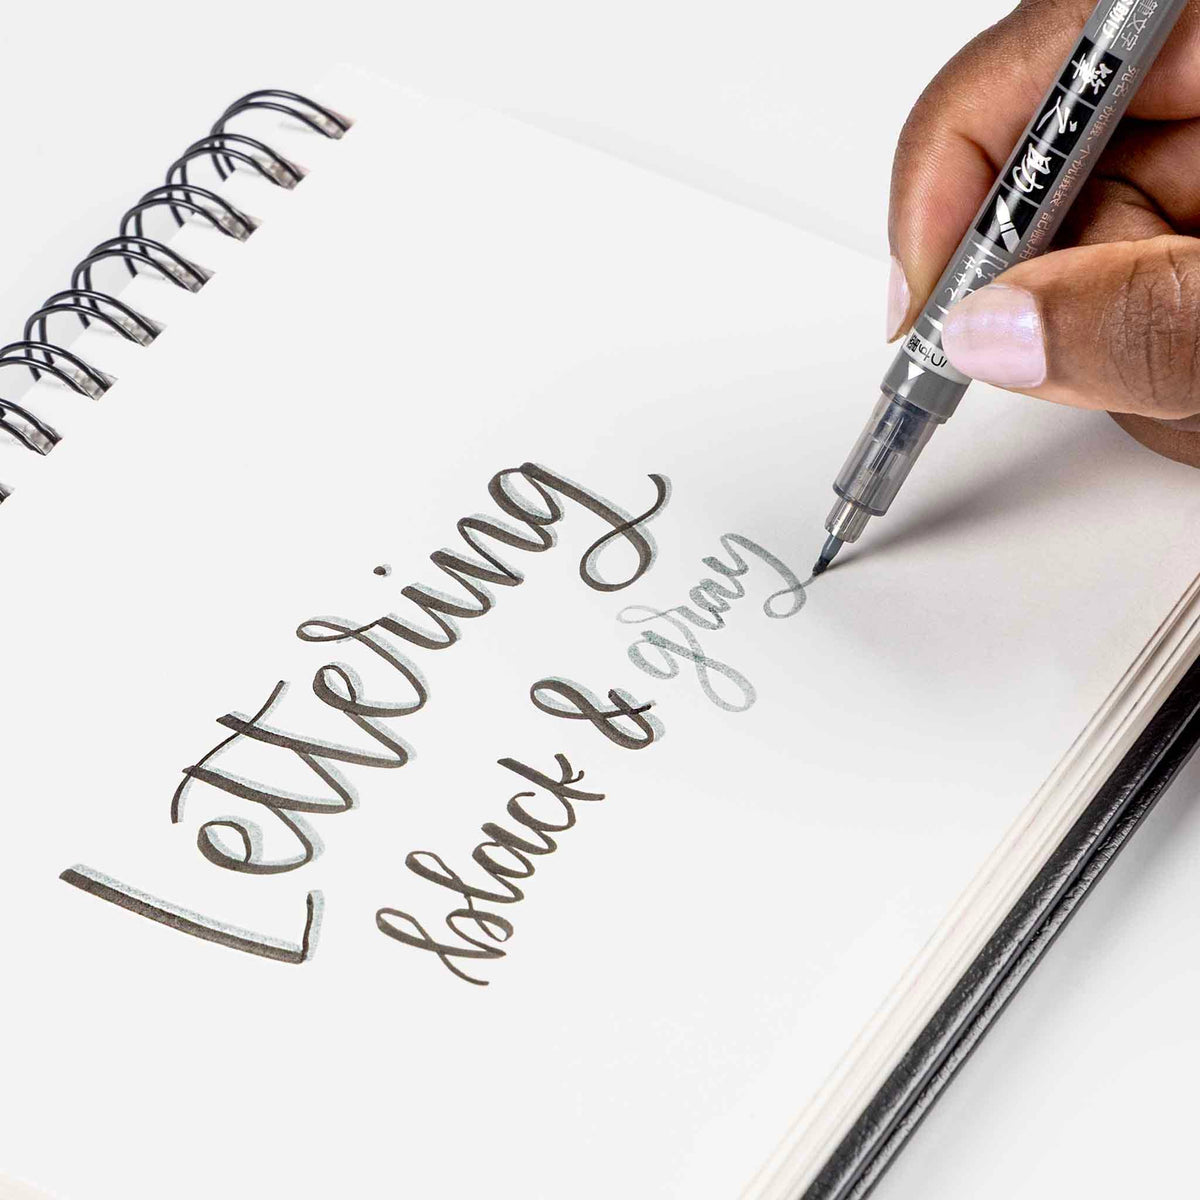 Lettering
black & gray
筆之助